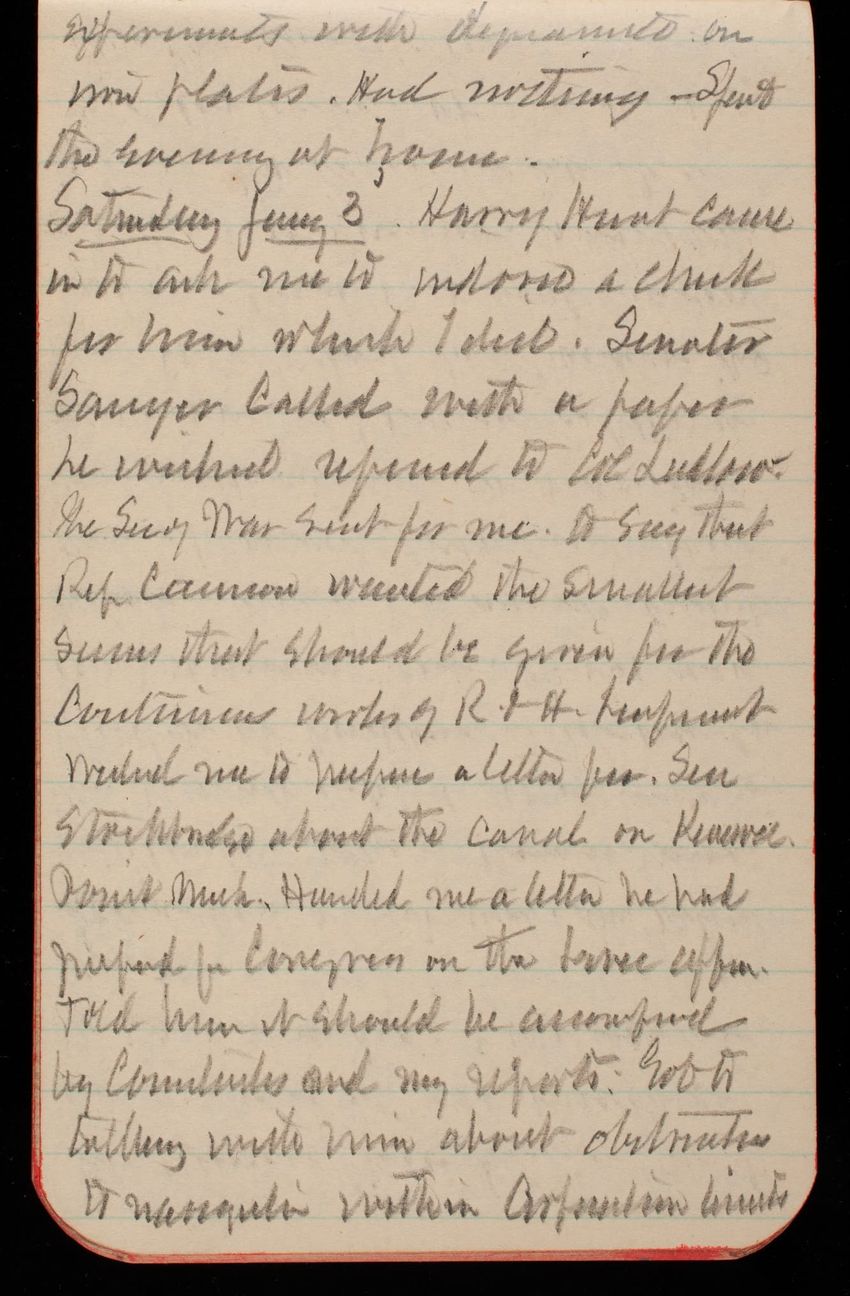 experiments with dynamite on
iron plates. Had nothing - Spent
the evening at home.
Saturday Jany 3. Harry Hunt came
in to ask me to indorse a check
for him which I did. Senator
Sawyer Called with a paper
he wished referred to Col Ludlow.
The Secy War sent for me. to say that
Rep Cannon wanted the smallest
sums that should be given for the
Continuous works of R & H.
Wished me to prepare a letter for. Sen
Stockbridge about the canal on Keweenaw
Point Mich. Handed me a letter he had
prepared for Congress on the
Told him it should be accompanied
by and my reports. Got to
talking with him about obstruction
to navigation within limits